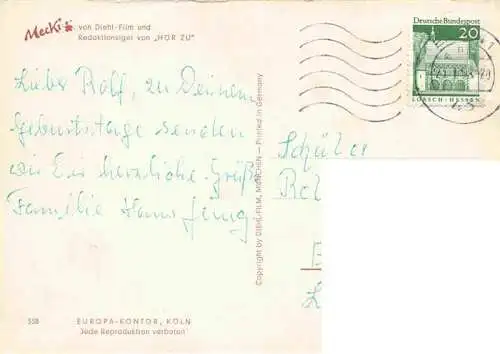 Mecki
von Diehl-Film und
Redaktionsigel von „HÖR ZU"
Deutsche Bundespost
20
LORSCH · HESSEN
Lieber Ralf, zu Deinem
Geburtstage senden
wir Dir herzliche Grüße
Familie Hans Jung
Copyright by DIEHL-FILM, MÜNCHEN — Printed in Germany
Schüler
558
EUROPA-KONTOR, KÖLN
Jede Reproduktion verboten